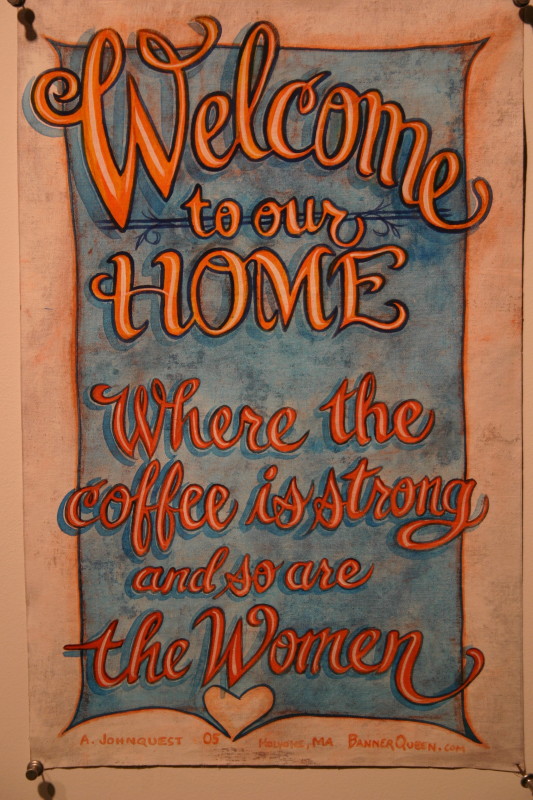 Welcome
to our
HOME
Where the
coffee is strong
and so are
the Women
A. JOHNQUEST 05 HOLYOKE, MA BANNERQUEEN.COM